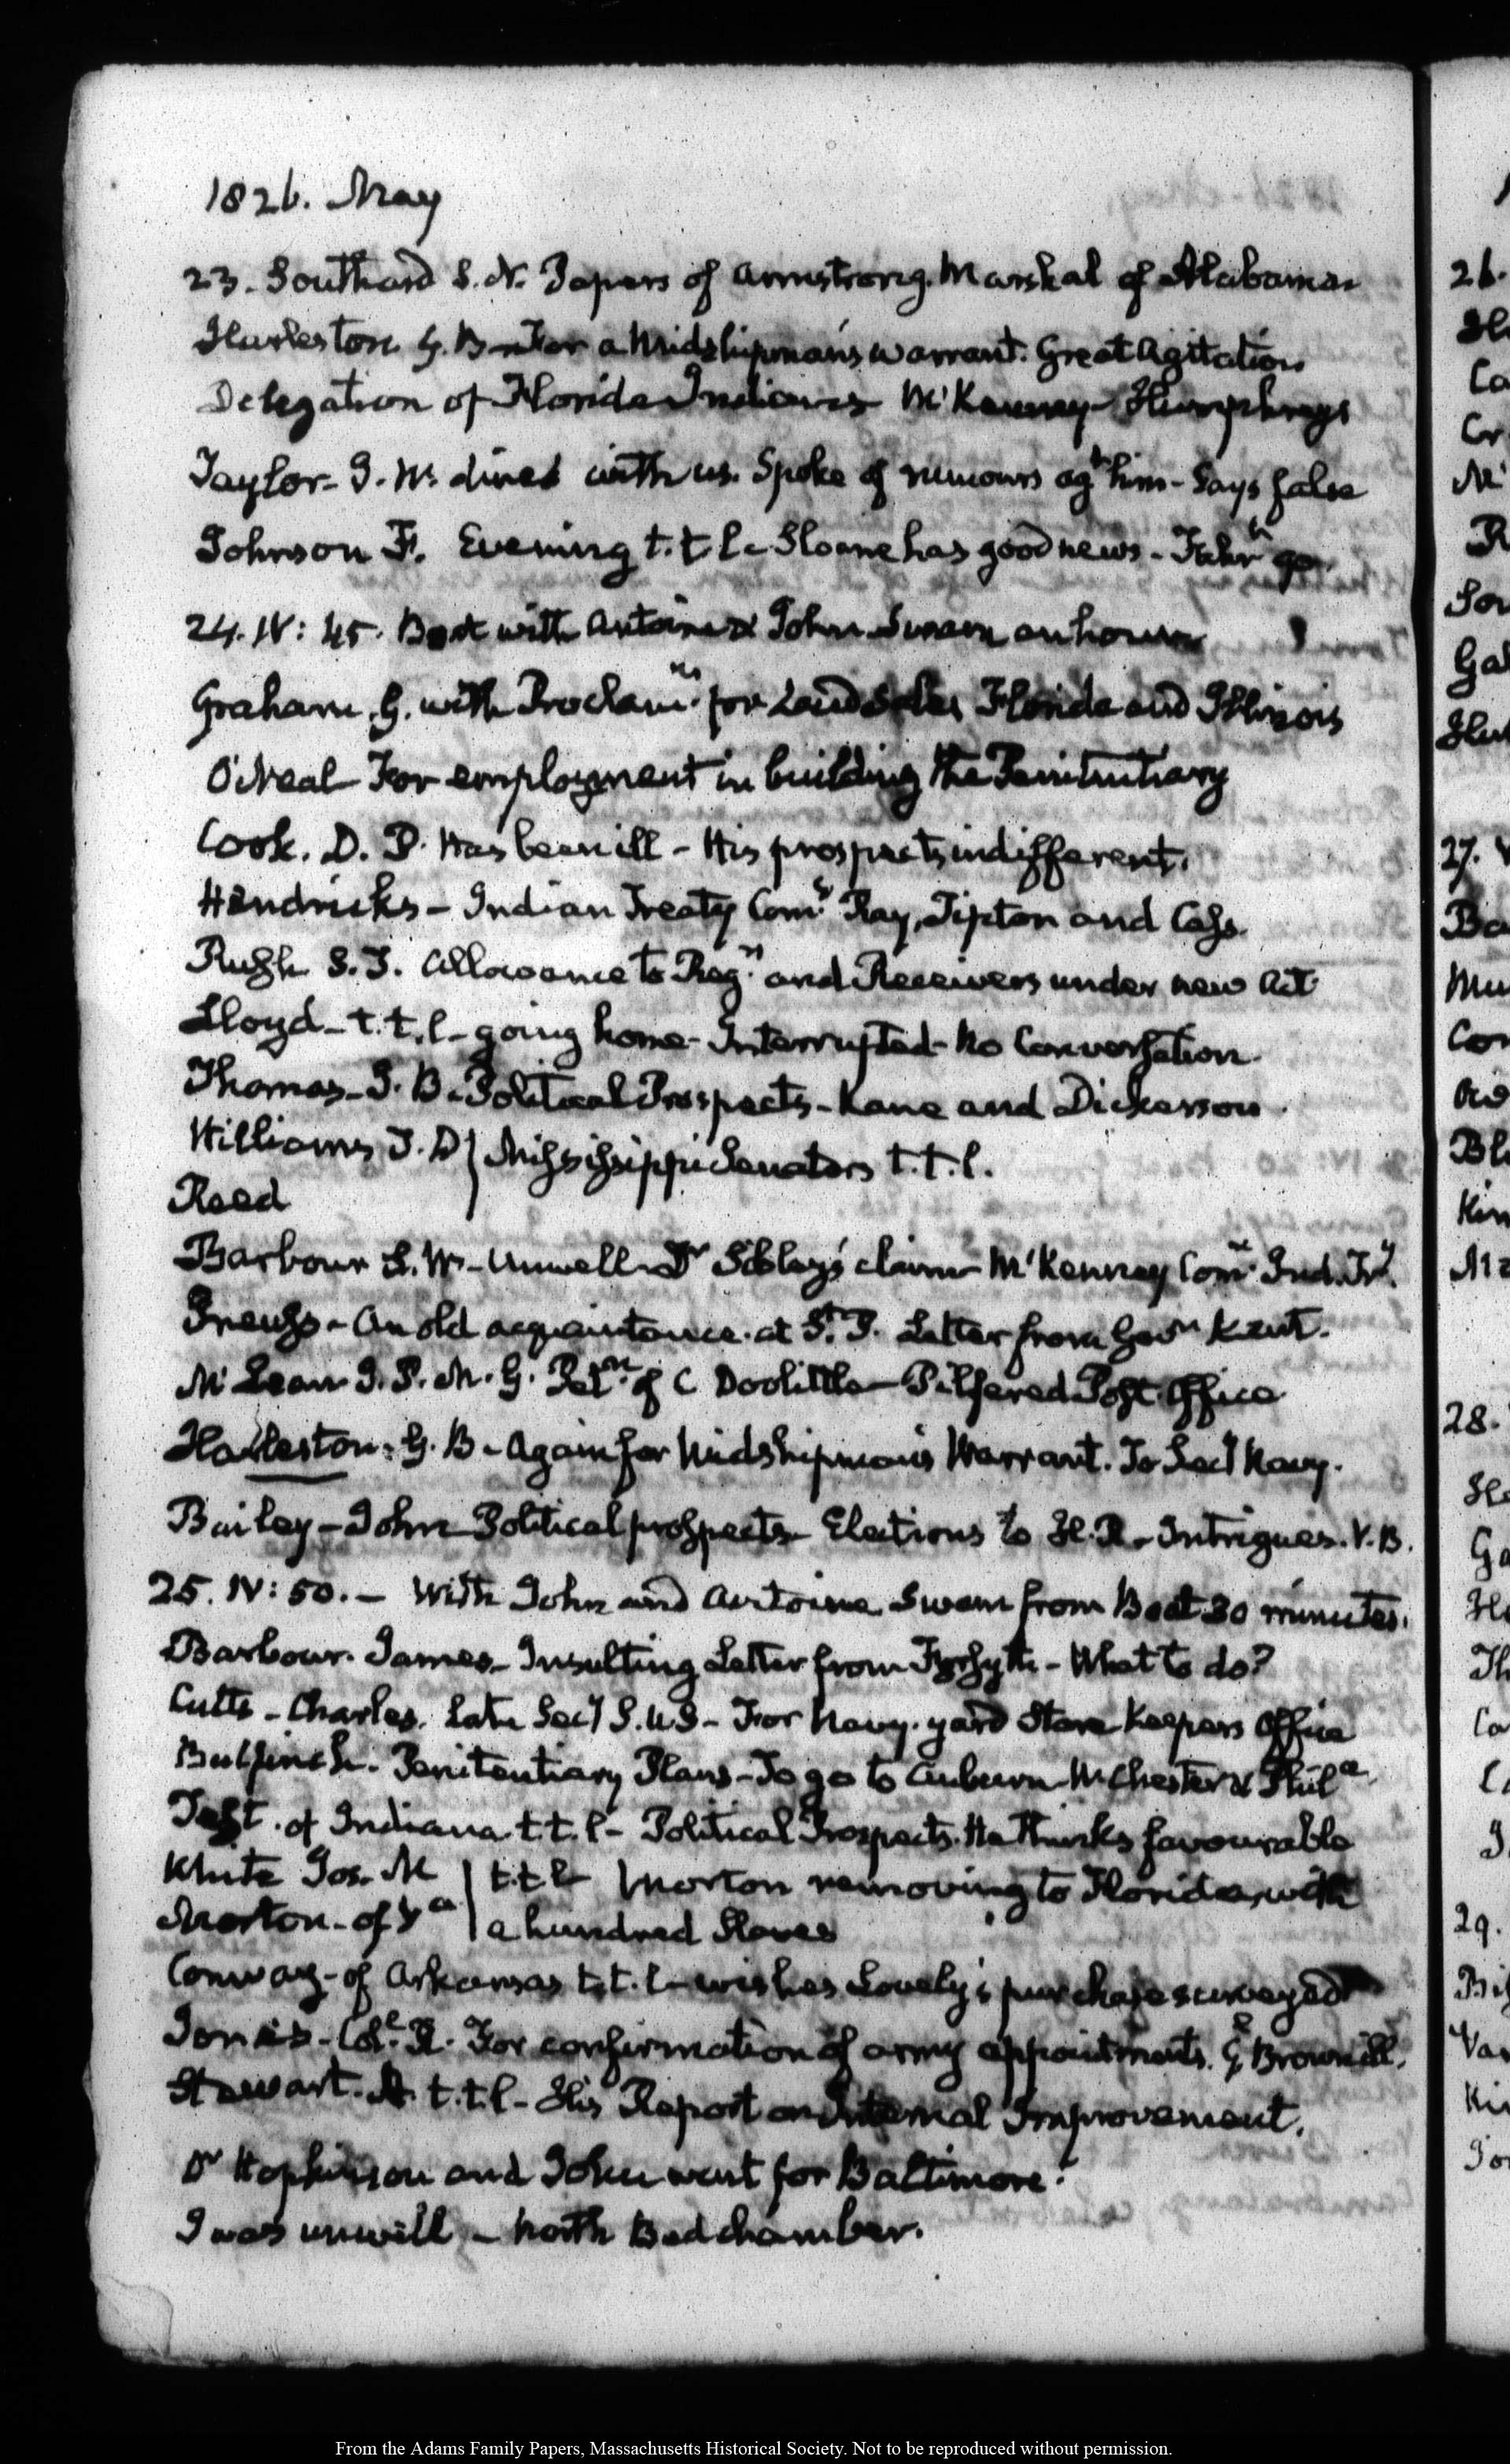 1826. May
23. Southard S. N. Papers of Armstrong. Marshal of Alabama
Harleston G. B. For a Midshipman's warrant. Great Agitation
Delegation of Florida Indians McKenney Humphreys
Taylor J. W. dined with us. Spoke of rumours agt him - Says false
Johnson F. Evening t.t.l. Sloane has good news -
24. IV: 45. Boat with Antoine & John Swam an hour
Graham. G. with Proclamns for Land Sales Florida and Illinois
O'Neal For employment in building the Penitentiary
Cook. D. P. Has been ill - His prospects indifferent.
Hendricks - Indian Treaty Comrs Ray, Tipton and Cass.
Rush S. T. Allowance to Regrs and Receivers under new Act
Lloyd - t.t.l - going home - Interrupted - No Conversation.
Thomas - J. B. Political Prospects - Kane and Dickerson
Williams T. Mississippi Senators t.t.l.
Reed
Barbour S. W. - Unwell - Dr Sibley's claim McKenney Comr Ind. Try
An old acquaintance at St. P. Letter from Govr Kent.
McLean J. P. M. G. Petn of C Doolittle - Pilfered Post Office
Harleston. G. B - Again for Midshipman's Warrant. To Secy Navy.
Bailey - John Political prospects Elections to H. R. - Intrigues. V. B.
25. IV: 50. - With John and Antoine Swam from Boat 30 minutes.
Barbour. James - Insulting Letter from Forsyth - What to do?
Cutts - Charles. Late Secy S. U. S - For Navy-yard Store Keepers Office
Bulfinch. Penitentiary Plans - To go to Auburn W. Chester & Phila
Test. of Indiana t.t.l - Political Prospects. He thinks favourable
White Jos. M t.t.l. Morton removing to Florida, with
Morton - of Va a hundred Slaves
Conway - of Arkansas t.t.l - wishes Lovely's purchase surveyed
Jones - Col. R. For confirmation of army appointments. G. Brown ill.
Stewart. A. t.t.l - His Report on Internal Improvement.
Dr Hopkinson and John went for Baltimore.
I was unwell - North Bedchamber.
26.
27.
28.
29.
From the Adams Family Papers, Massachusetts Historical Society. Not to be reproduced without permission.